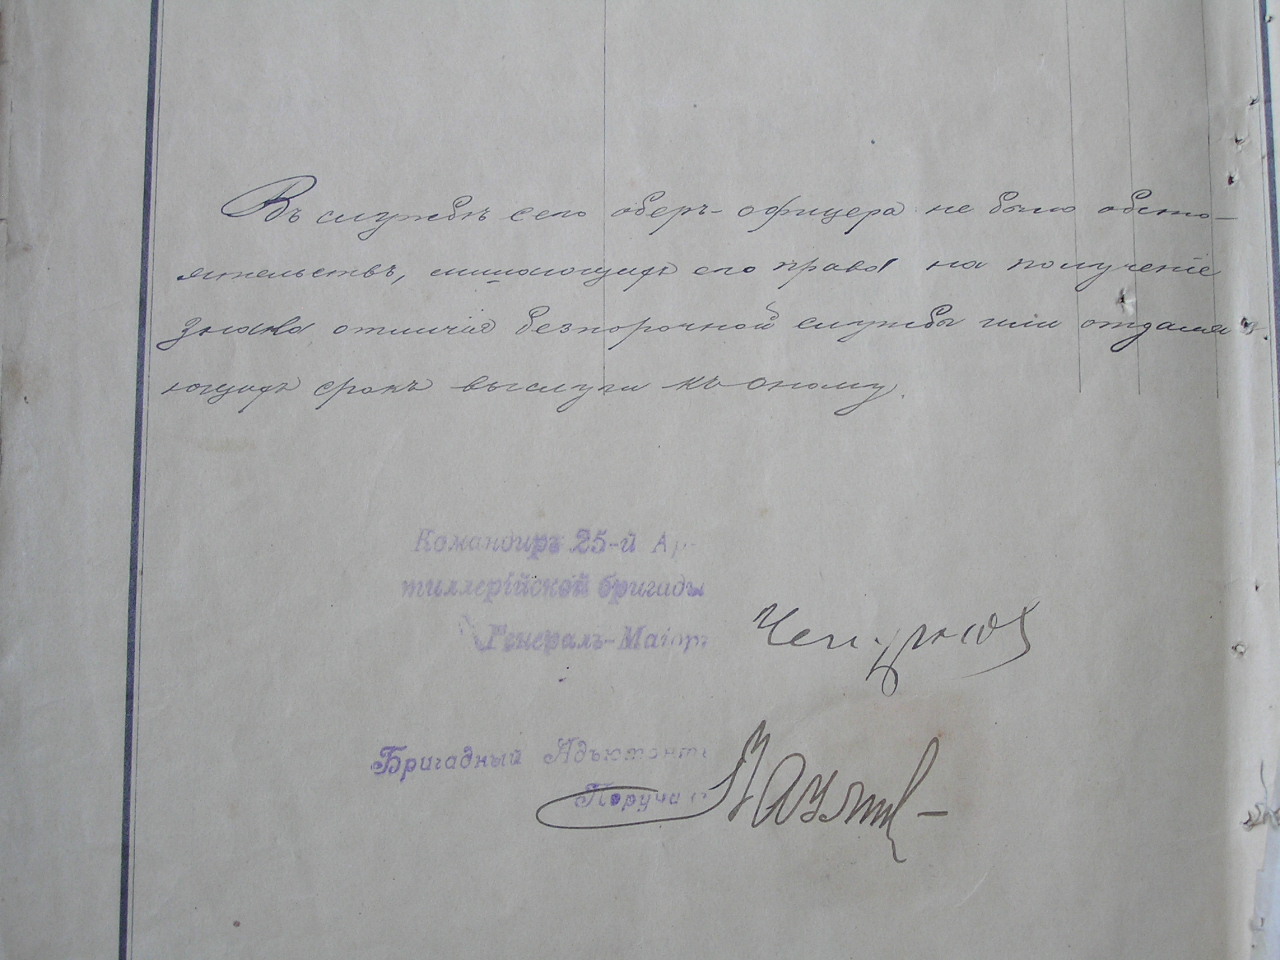 Въ службѣ сего оберъ-офицера не было обсто-
ятельствъ, лишающихъ его права на полученіе
знака отличія безпорочной службы или отдаля
ющихъ срокъ выслуги къ оному.
Командиръ 25-й Ар-
тиллерійской бригады
Генералъ-Маіоръ
Бригадный Адъютантъ
Поручикъ